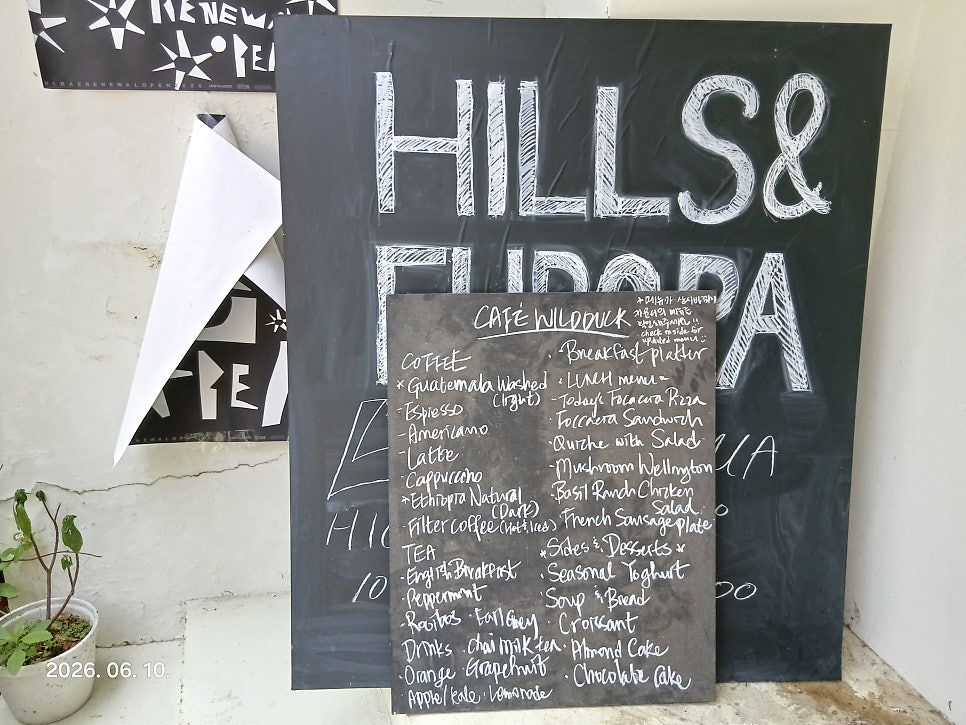 RENEWA
OPE
RENEWALOPEN
RE
HILLS&
EUROPA
CAFÉ WILDDUCK
check inside for
updated menu
COFFEE
* Guatemala Washed
(light)
- Espresso
- Americano
- Latte
- Cappuccino
* Ethiopia Natural
(Dark)
- Filter coffee (Hot & Iced)
TEA
- English Breakfast
Peppermint
- Rooibos · Earl Grey
Drinks · chai milk tea
Orange · Grapefruit
Apple/kale · Lemonade
· Breakfast platter
· LUNCH menu -
- Today's Focaccia Pizza
Foccacia Sandwich
· Quiche with Salad
· Mushroom Wellington
· Basil Ranch Chicken
Salad
· French Sausage plate
* Sides & Desserts *
· Seasonal Yoghurt
· Soup & Bread
· Croissant
· Almond Cake
· Chocolate Cake
10
00
2026. 06. 10.